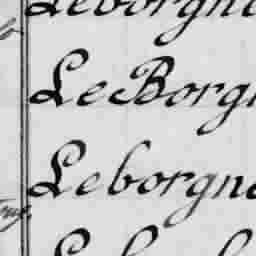 Leborgne
LeBorgn
Leborgne